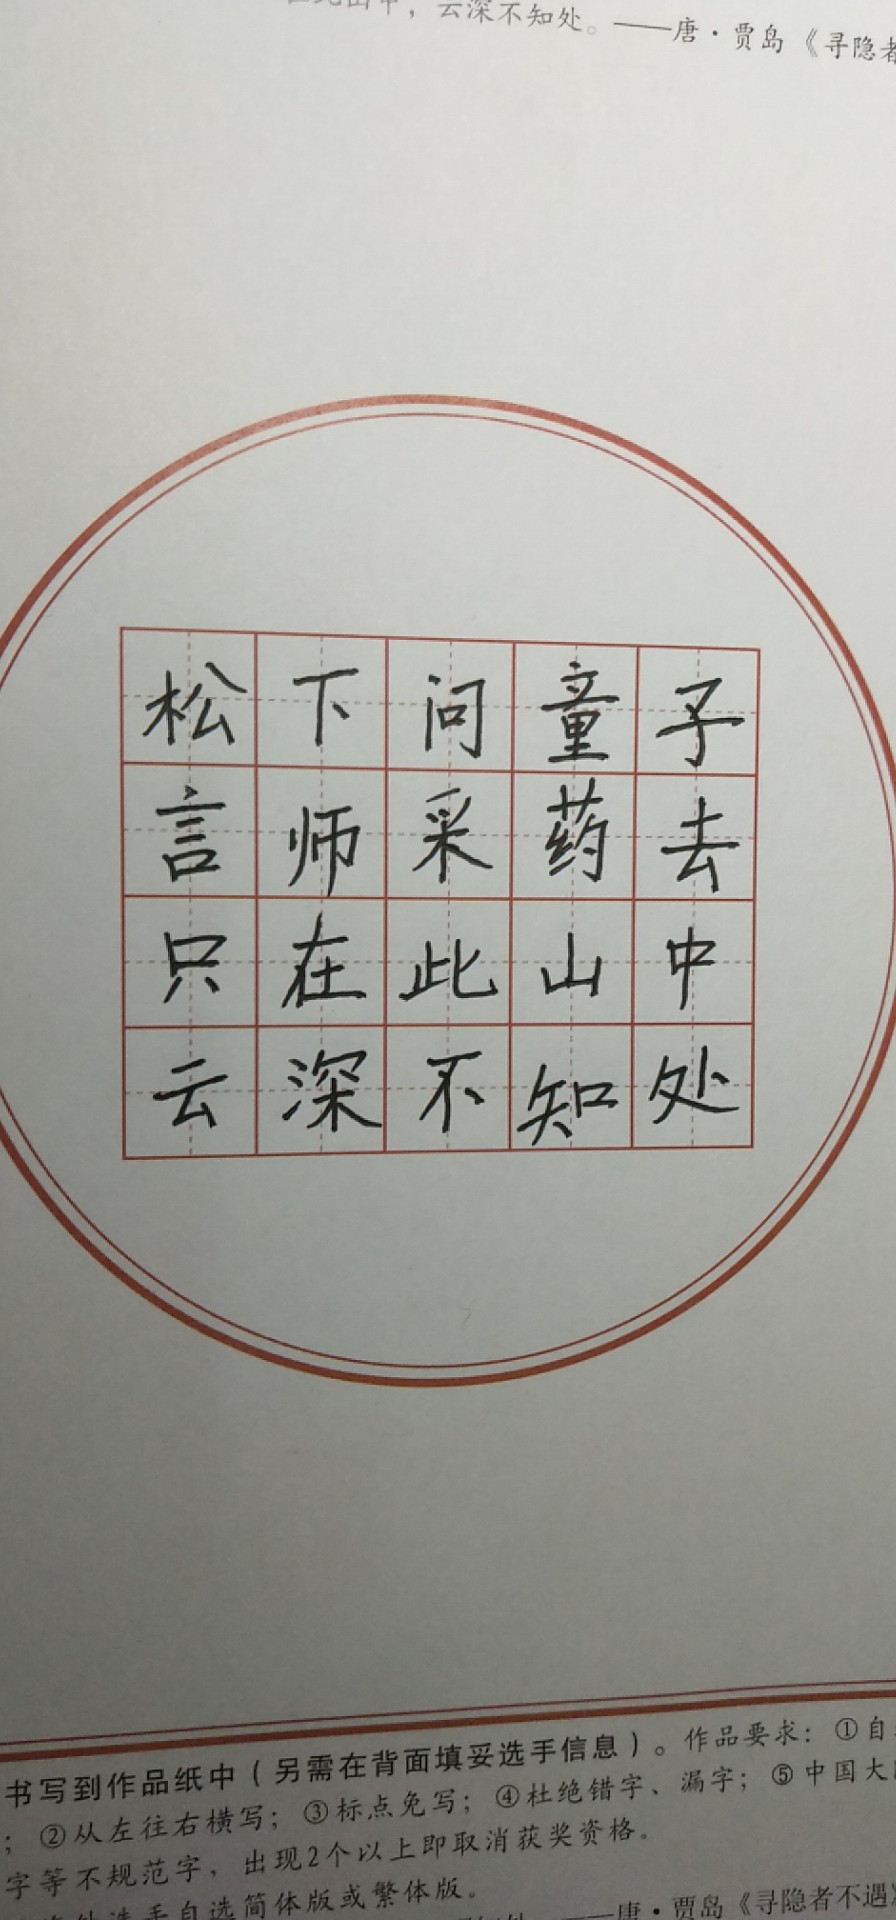 中，云深不知处。——唐·贾岛《寻隐者
松下问童子
言师采药去
只在此山中
云深不知处
书写到作品纸中（另需在背面填妥选手信息）。作品要求：①自
；②从左往右横写；③标点免写；④杜绝错字、漏字；⑤中国大
字等不规范字，出现2个以上即取消获奖资格。
选手自选简体版或繁体版。
——唐·贾岛《寻隐者不遇》